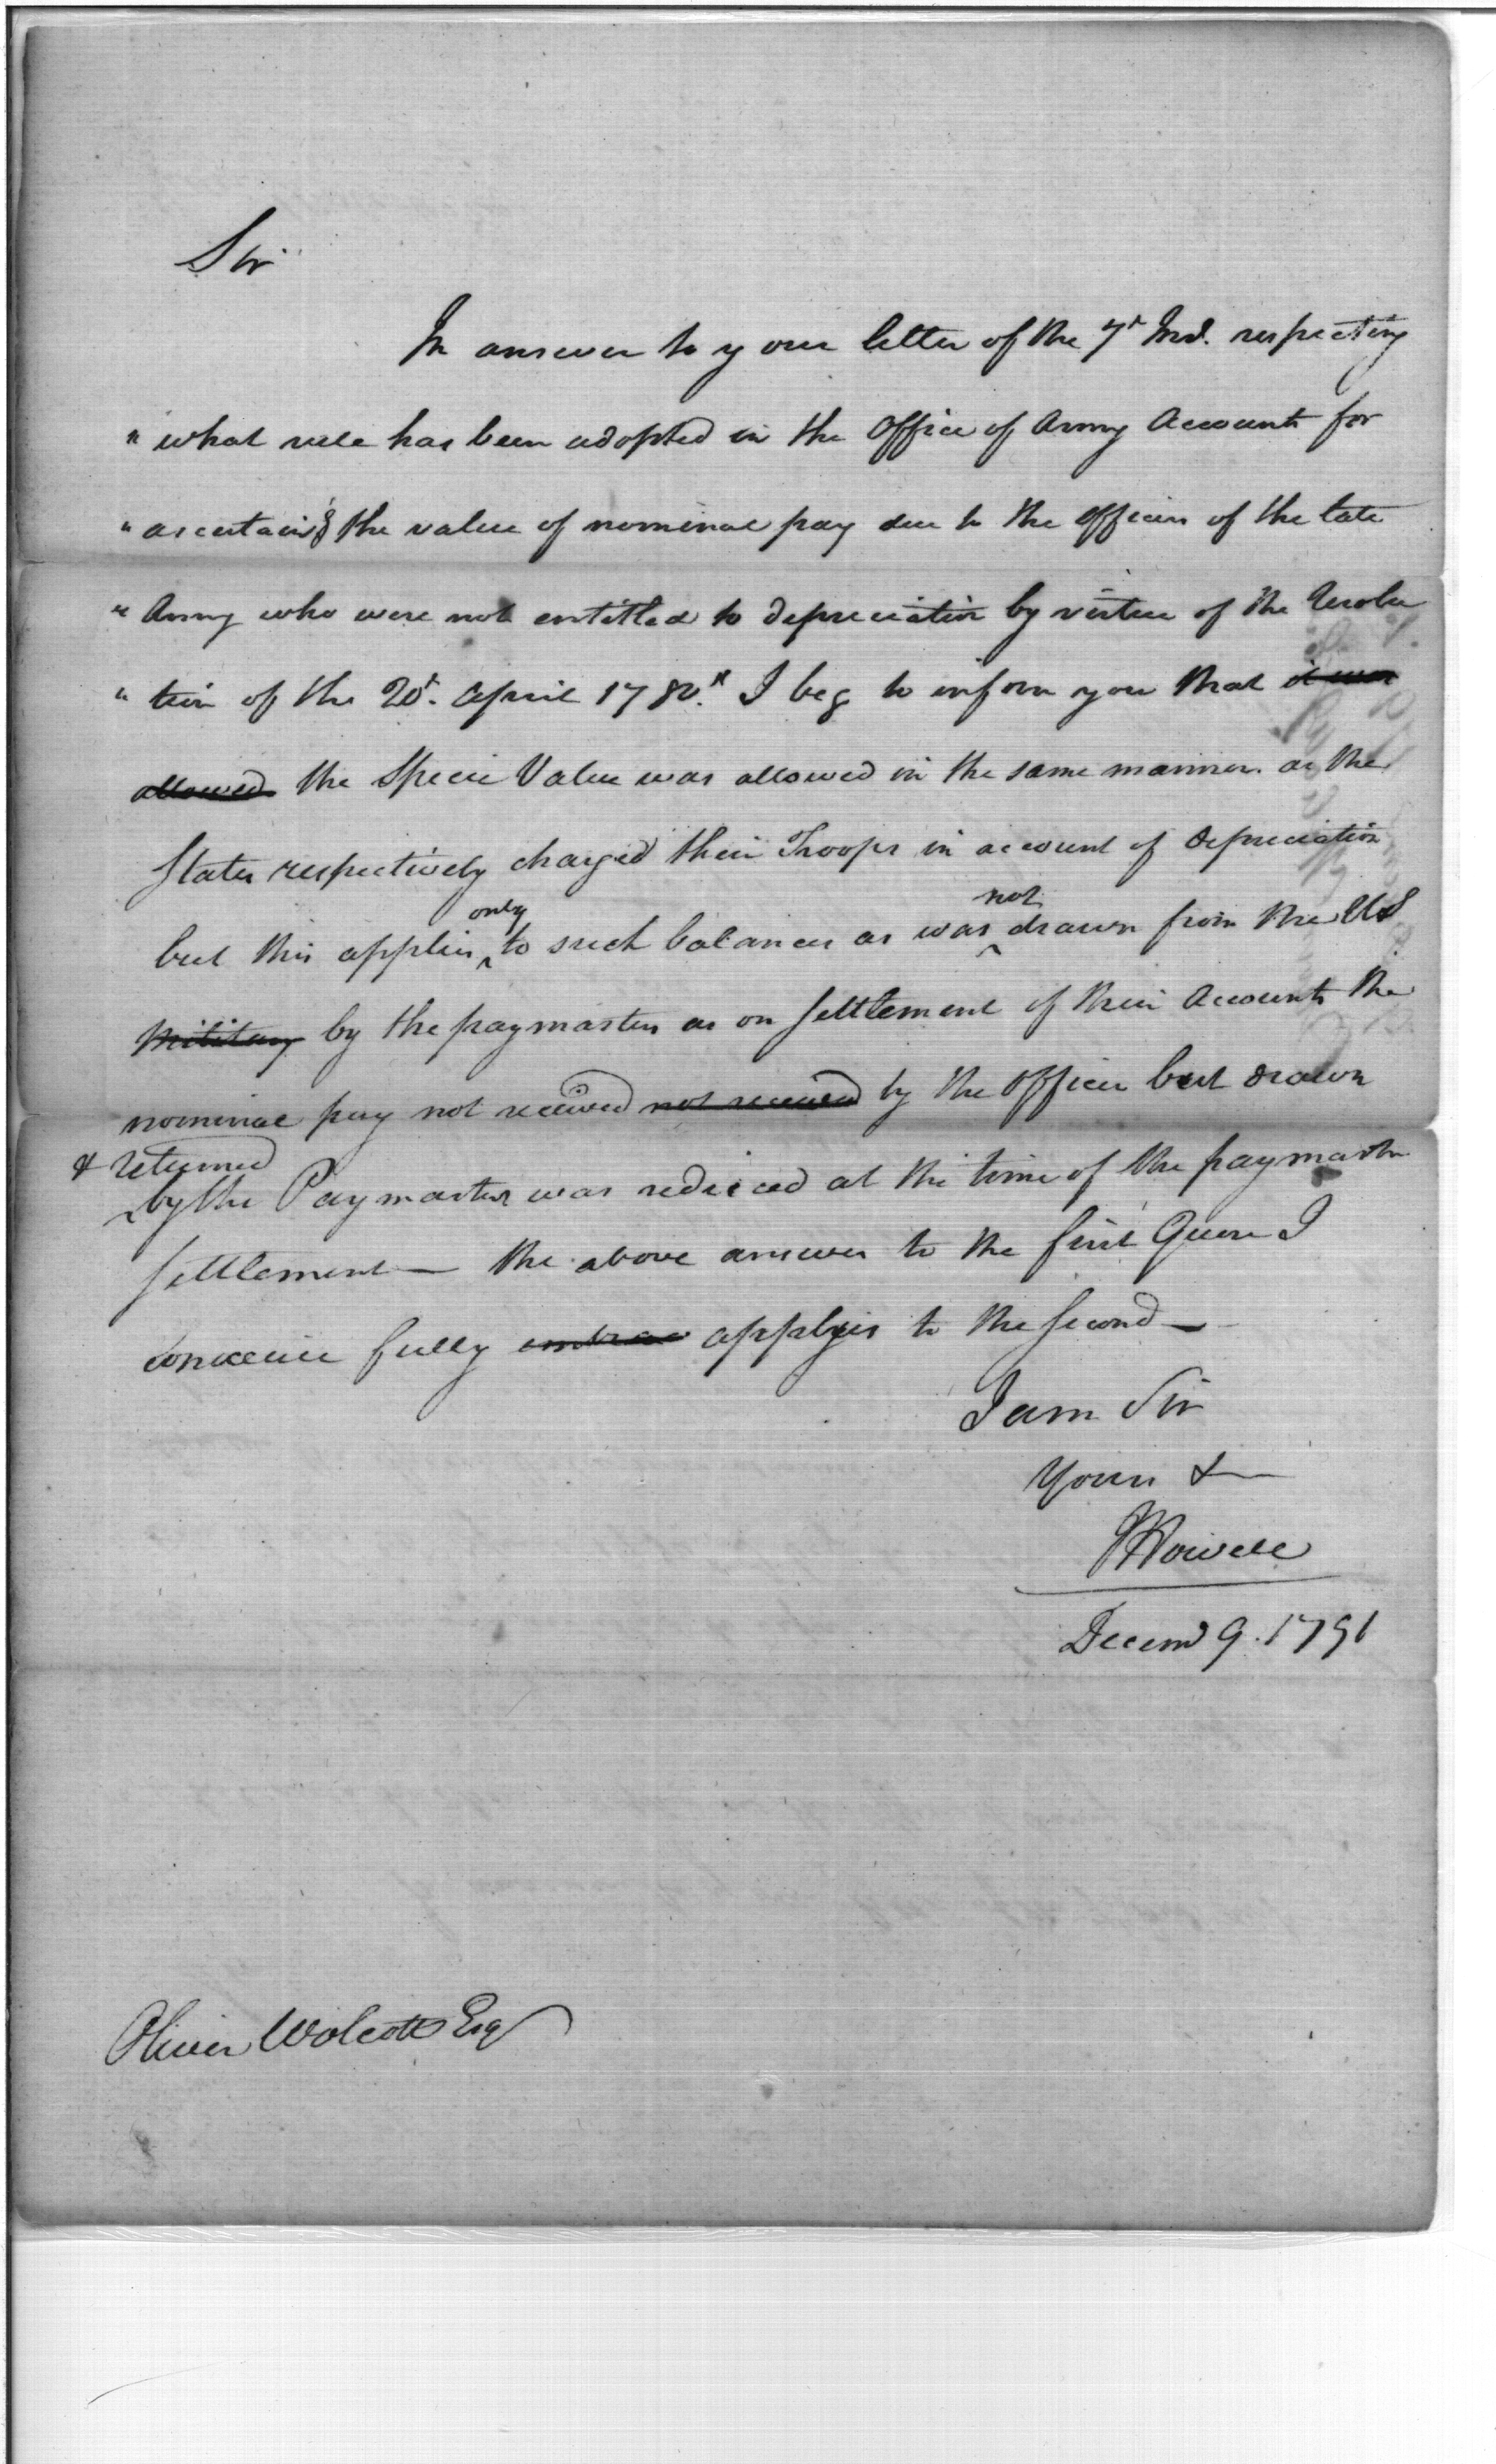 Sir
In answer to your letter of the 7th Inst. respecting
" what rule has been adopted in the Office of Army Accounts for
" ascertaing the value of nominal pay due to the officers of the late
" Army who were not entitled to depreciation by virtue of the Resolu
" tion of the 20th. April 1780." I beg to inform you that it was
allowed the Specie Value was allowed in the same manner as the
States respectively charged their Troops in account of depreciation
but this applies only to such balances as was not drawn from the US
Military by the paymasters as on Settlement of their Accounts the
nominal pay not received not received by the Officer but drawn
& returned
by the Paymaster was reduced at the time of the paymaster
Settlement — the above answer to the first Quere I
conceive fully embrace applyies to the Second —
I am Sir
Yours &
JHowell
Decemr 9. 1791
Oliver Wolcott Esq